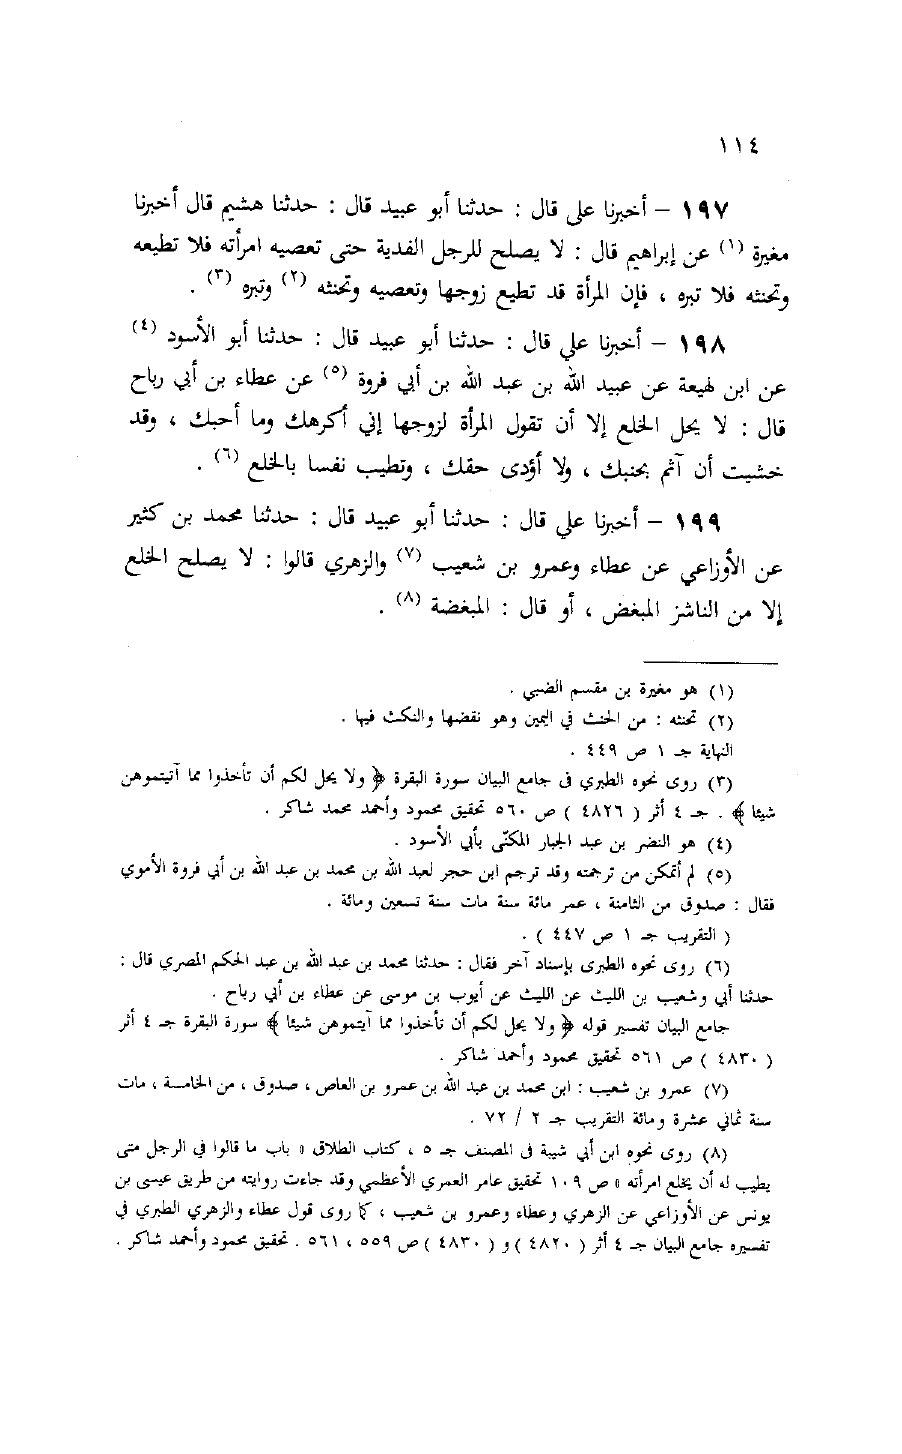 ١١٤
١٩٧ – أخبرنا على قال : حدثنا أبو عبيد قال : حدثنا هشيم قال أخبرنا
مغيرة (١) عن إبراهيم قال : لا يصلح للرجل الفدية حتى تعصيه امرأته فلا تطيعه
وتحنثه فلا تبره ، فإن المرأة قد تطيع زوجها وتعصيه وتحنثه (٢) وتبره (٣) .
١٩٨ – أخبرنا علي قال : حدثنا أبو عبيد قال : حدثنا أبو الأسود (٤)
عن ابن لهيعة عن عبيد الله بن عبد الله بن أبي فروة (٥) عن عطاء بن أبي رباح
قال : لا يحل الخلع إلا أن تقول المرأة لزوجها إني أكرهك وما أحبك ، وقد
خشيت أن آثم بجنبك ، ولا أؤدى حقك ، وتطيب نفسا بالخلع (٦) .
١٩٩ – أخبرنا علي قال : حدثنا أبو عبيد قال : حدثنا محمد بن كثير
عن الأوزاعي عن عطاء وعمرو بن شعيب (٧) والزهري قالوا : لا يصلح الخلع
إلا من الناشز المبغض ، أو قال : المبغضة (٨) .
(١) هو مغيرة بن مقسم الضبي .
(٢) تحنثه : من الحنث في اليمين وهو نقضها والنكث فيها .
النهاية جـ ١ ص ٤٤٩ .
(٣) روى نحوه الطبري فى جامع البيان سورة البقرة ﴿ ولا يحل لكم أن تأخذوا مما آتيتموهن
شيئا ﴾ . جـ ٤ أثر ( ٤٨٢٦ ) ص ٥٦٠ تحقيق محمود وأحمد محمد شاكر .
(٤) هو النضر بن عبد الجبار المكنّى بأبي الأسود .
(٥) لم أتمكن من ترجمته وقد ترجم ابن حجر لعبد الله بن محمد بن عبد الله بن أبي فروة الأموي
فقال : صدوق من الثامنة ، عمر مائة سنة مات سنة تسعين ومائة .
( التقريب جـ ١ ص ٤٤٧ ) .
(٦) روى نحوه الطبرى بإسناد آخر فقال : حدثنا محمد بن عبد الله بن عبد الحكم المصري قال :
حدثنا أبي وشعيب بن الليث عن الليث عن أيوب بن موسى عن عطاء بن أبي رباح .
جامع البيان تفسير قوله ﴿ ولا يحل لكم أن تأخذوا مما آيتموهن شيئا ﴾ سورة البقرة جـ ٤ أثر
( ٤٨٣٠ ) ص ٥٦١ تحقيق محمود وأحمد شاكر .
(٧) عمرو بن شعيب : ابن محمد بن عبد الله بن عمرو بن العاص ، صدوق ، من الخامسة ، مات
سنة ثماني عشرة ومائة التقريب جـ ٢ / ٧٢ .
(٨) روى نحوه ابن أبي شيبة فى المصنف جـ ٥ ، كتاب الطلاق « باب ما قالوا في الرجل متى
يطيب له أن يخلع امرأته » ص ١٠٩ تحقيق عامر العمري الأعظمي وقد جاءت روايته من طريق عيسى بن
يونس عن الأوزاعي عن الزهري وعطاء وعمرو بن شعيب ، كما روى قول عطاء والزهري الطبري في
تفسيره جامع البيان جـ ٤ أثر ( ٤٨٢٠ ) و ( ٤٨٣٠ ) ص ٥٥٩ ، ٥٦١ . تحقيق محمود وأحمد شاكر .